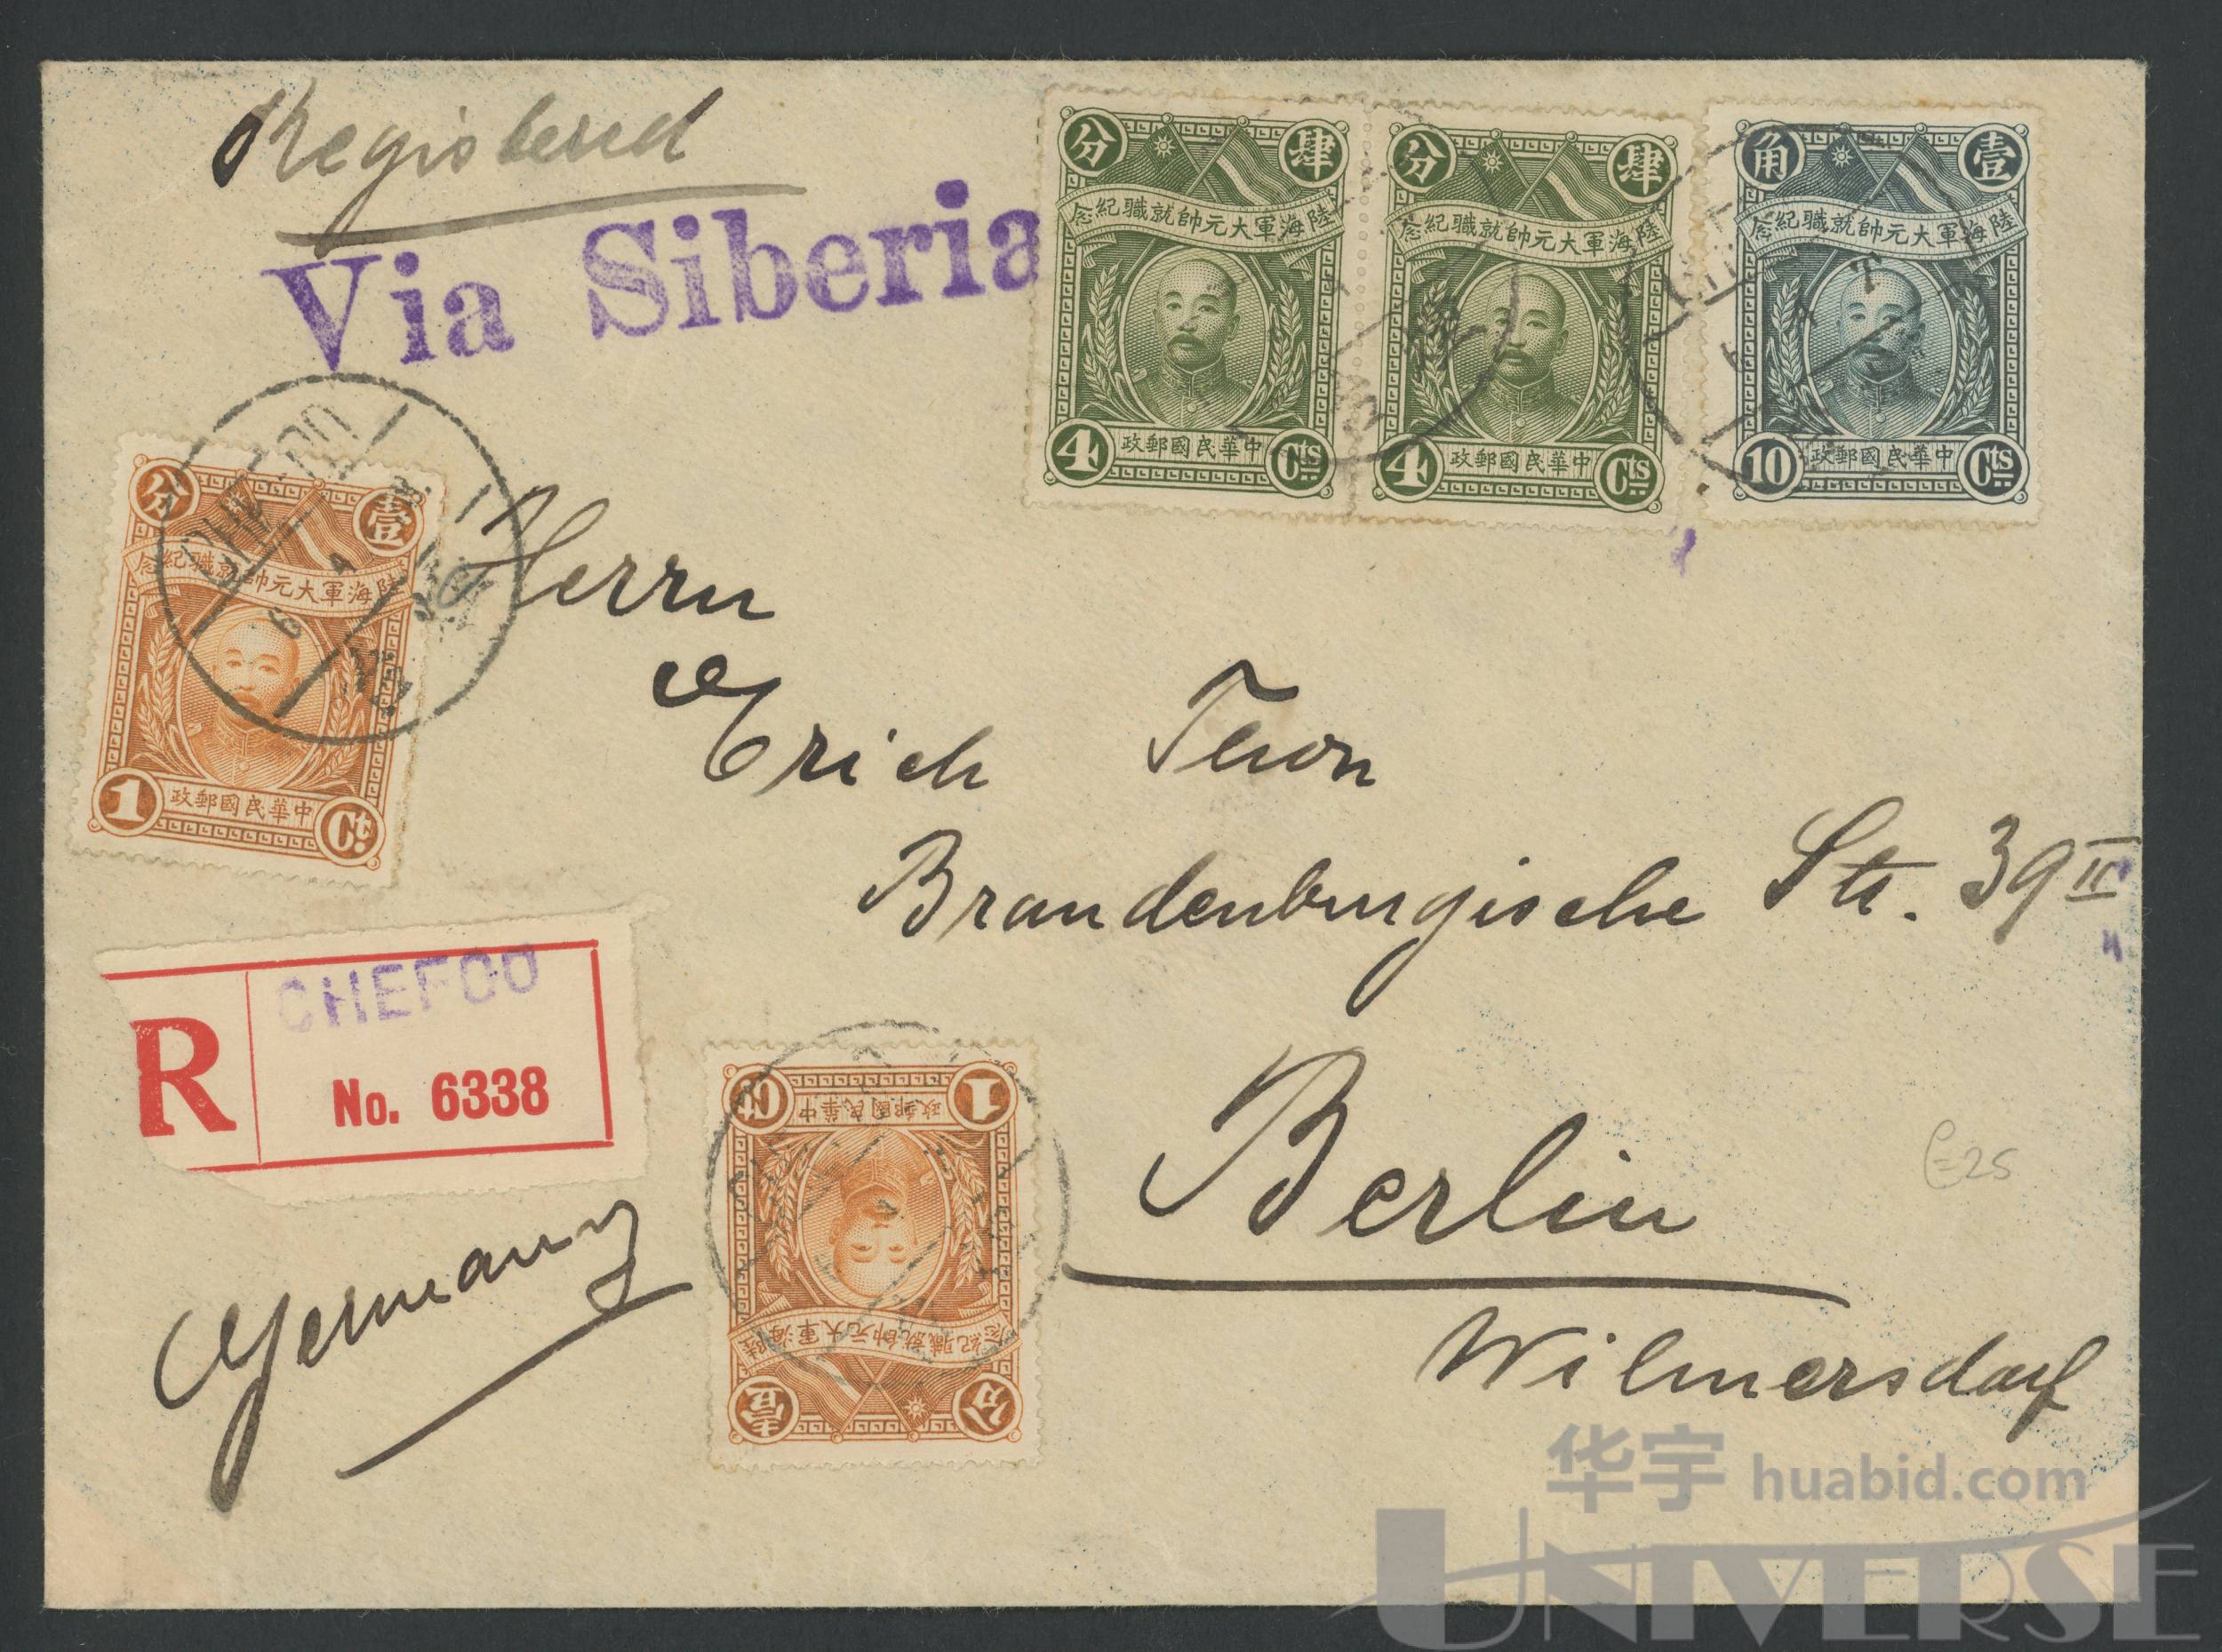 Registered
Via Siberia
分 肆
陸海軍大元帥就職紀念
4 中華民國郵政 Cts
分 肆
陸海軍大元帥就職紀念
4 中華民國郵政 Cts
角 壹
陸海軍大元帥就職紀念
10 中華民國郵政 Cts
CHEFOO
分 壹
陸海軍大元帥就職紀念
1 中華民國郵政 Ct.
Herrn
Erich
Brandenburgische Str. 39 II
CHEFOO
R No. 6338
Berlin
Wilmersdorf
Germany
1 中華民國郵政 Ct.
陸海軍大元帥就職紀念
分 壹
£25
华宇 huabid.com
UNIVERSE